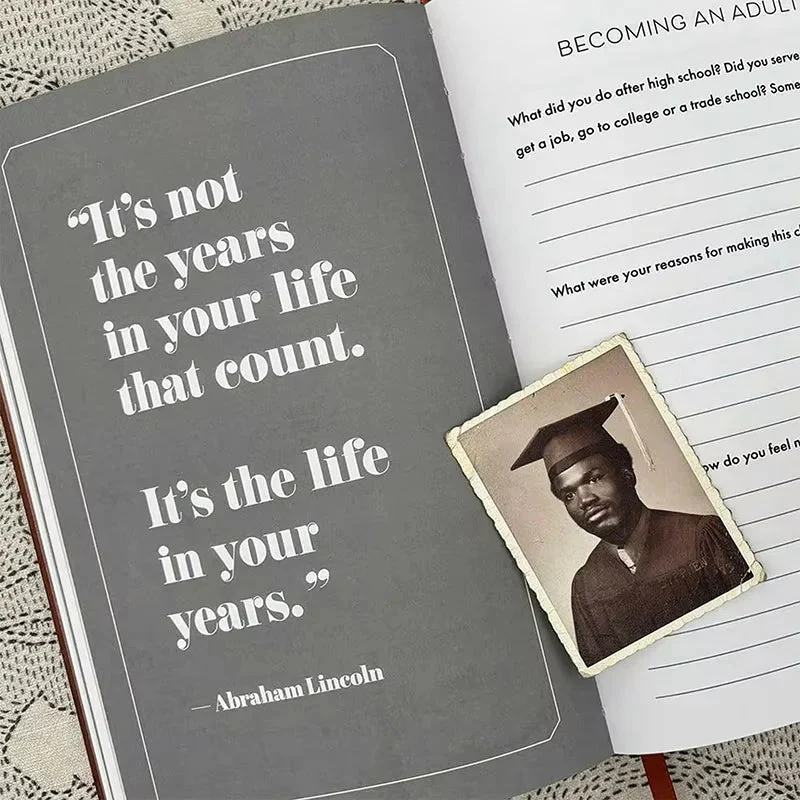 “It’s not
the years
in your life
that count.
It’s the life
in your
years.”
— Abraham Lincoln
BECOMING AN ADULT
What did you do after high school? Did you serve
get a job, go to college or a trade school? Some
What were your reasons for making this
do you feel